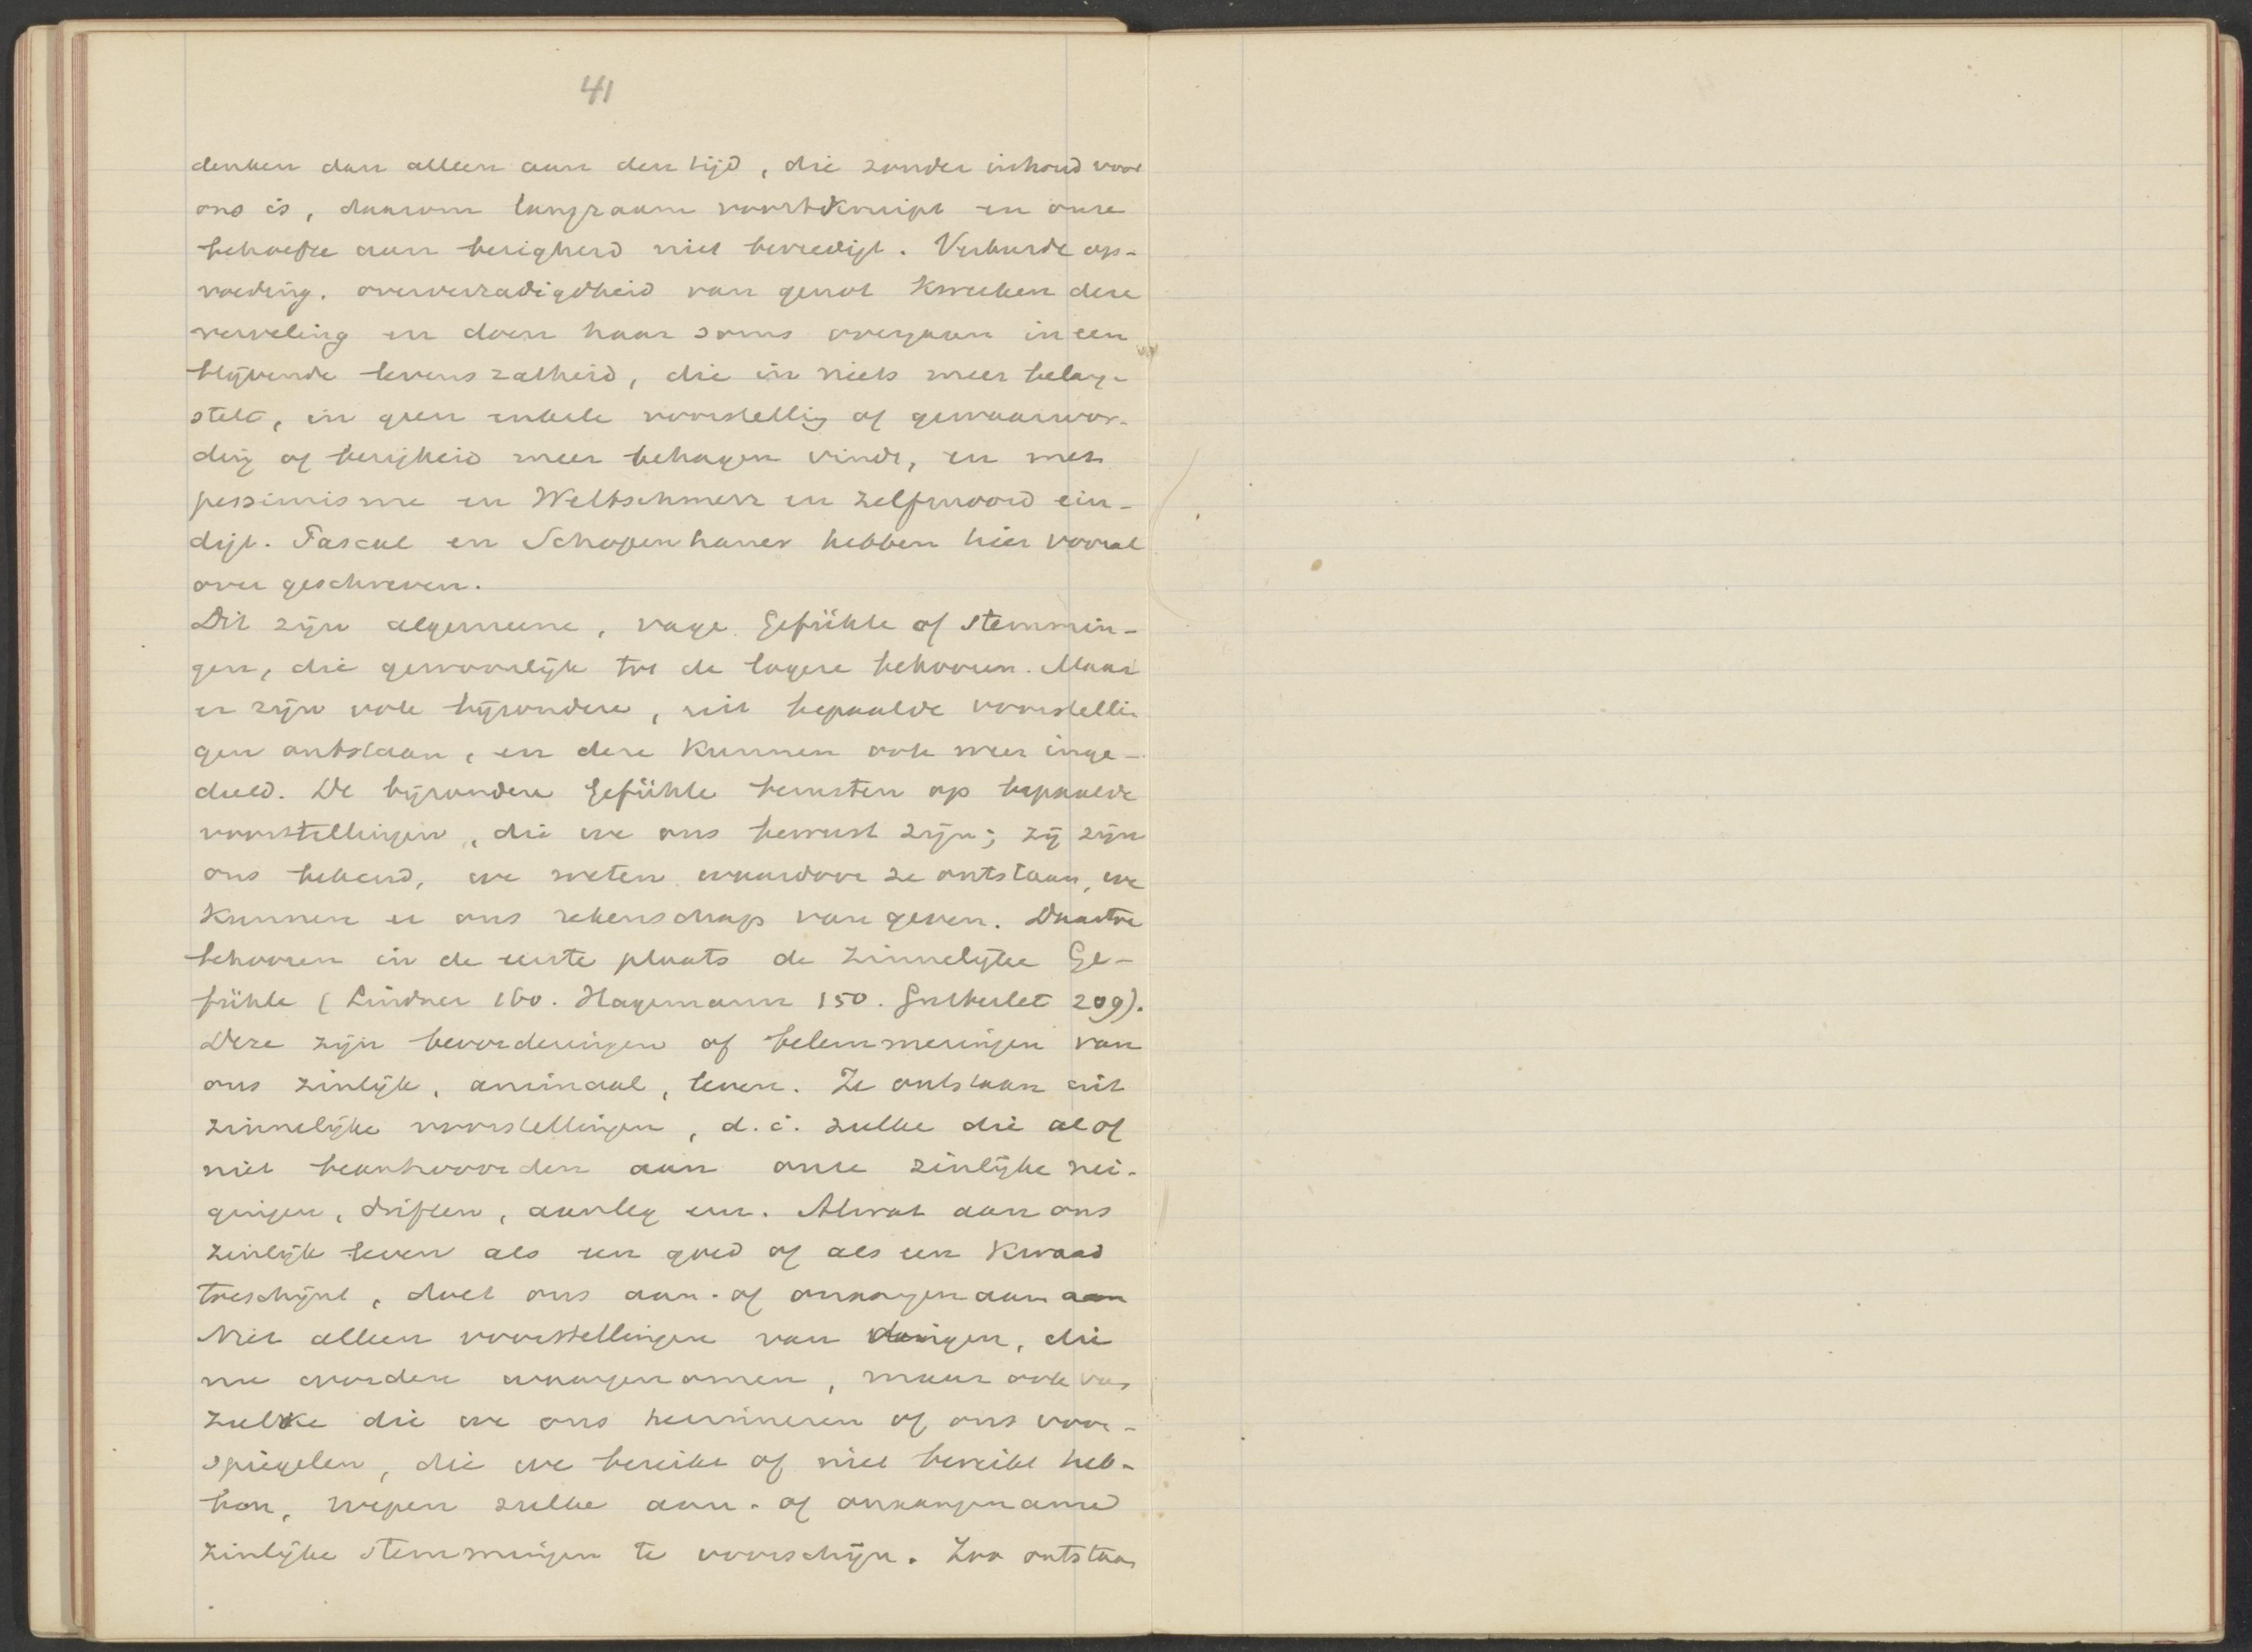 41
denken dan alleen aan den tijd, die zonder inhoud voor
ons is, daarom langzaam voortkruipt en onze
behoefte aan bezigheid niet bevredigt. Verkeerde op-
voeding. oververzadigdheid van genot kweeken deze
verveling en doen haar soms overgaan in een
blijvende levenszatheid, die in niets meer belang
stelt, in geen enkele voorstelling of gewaarwor-
ding of bezigheid meer behagen vindt, en met
pessimisme en Weltschmerz en zelfmoord ein-
digt. Pascal en Schopenhauer hebben hier vooral
over geschreven.
Dit zijn algemeene, vage Gefühle of stemmin-
gen, die gewoonlijk tot de lagere behooren. Maar
er zijn ook bijzondere, uit bepaalde voorstellin
gen ontstaan, en deze kunnen ook weer inge-
deeld. De bijzondere Gefühle berusten op bepaalde
voorstellingen, die we ons bewust zijn; zij zijn
ons bekend, we weten waardoor ze ontstaan, we
kunnen er ons rekenschap van geven. Daartoe
behooren in de eerste plaats de zinnelijke Ge-
fühle (Lindner 160. Hagemann 150. Gutberlet 209).
Deze zijn bevorderingen of belemmeringen van
ons zinlijk, animaal, leven. Ze ontstaan uit
zinnelijke voorstellingen, d. i. zulke die al of
niet beantwoorden aan onze zinlijke nei-
gingen, driften, aanleg enz. Alwat aan ons
zinlijk leven als een goed of als een kwaad
toeschijnt, doet ons aan- of onaangenaam aan
Niet alleen voorstellingen van dingen, die
nu worden waargenomen, maar ook van
zulke die we ons herinneren of ons voor-
spiegelen, die we bereikt of niet bereikt heb-
ben, roepen zulke aan- of onaangename
zinlijke stemmingen te voorschijn. Zoo ontstaan